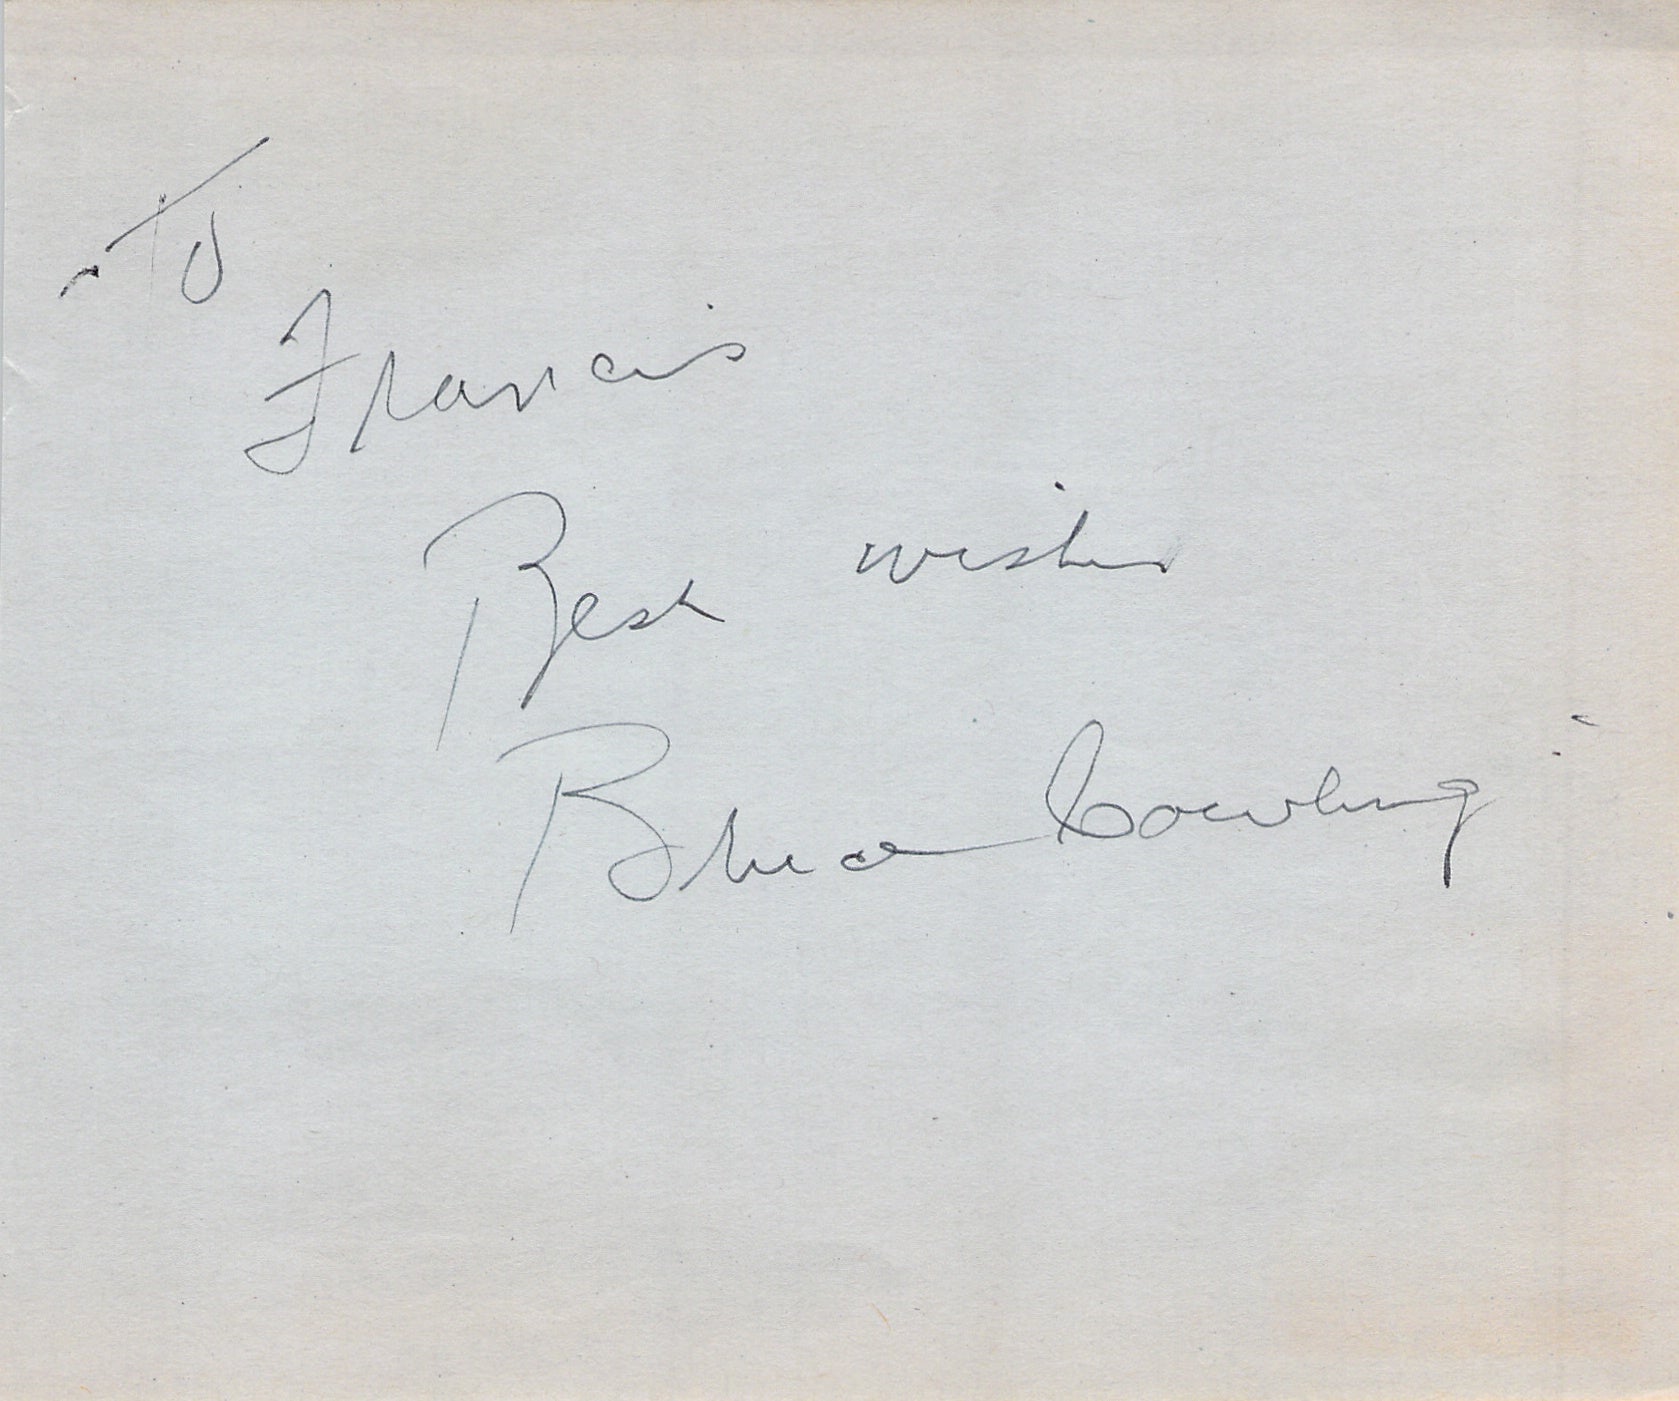 To
Francis
Best wishes
Bruce Cowling